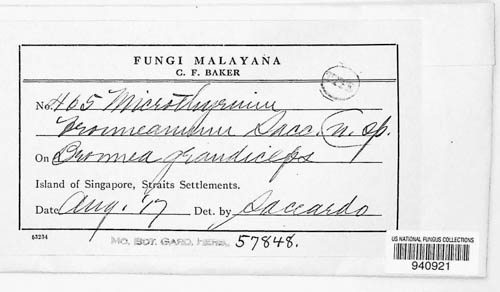 FUNGI MALAYANA
C. F. BAKER
No. 405 Microthyrium
Browneanum Sacc. n. sp.
On Brownea grandiceps
Island of Singapore, Straits Settlements.
Date Aug. '17 Det. by Saccardo
63234
MO. BOT. GARD. HERB. 57848.
US NATIONAL FUNGUS COLLECTIONS
940921